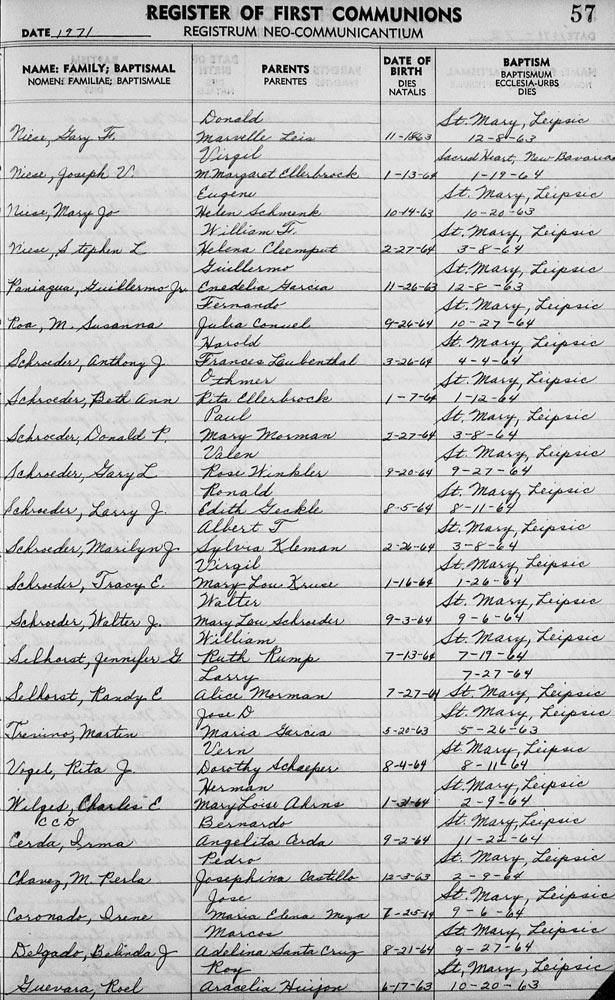 REGISTER OF FIRST COMMUNIONS 57
DATE 1971 REGISTRUM NEO-COMMUNICANTIUM
NAME: FAMILY; BAPTISMAL PARENTS DATE OF BIRTH BAPTISM
NOMEN: FAMILIAE; BAPTISMALE PARENTES DIES NATALIS BAPTISMUM ECCLESIA-URBS DIES
Donald St. Mary, Leipsic
Niese, Gary Fr. Marvelle Leis 11-18-63 12-8-63
Virgil Sacred Heart, New Bavaria
Niese, Joseph V. M Margaret Ellerbrock 1-13-64 1-19-64
Eugene St. Mary, Leipsic
Niese, Mary Jo Helen Schmenk 10-14-63 10-20-63
William F. St. Mary, Leipsic
Niese, Stephen L Helena Cleemput 2-27-64 3-8-64
Guillermo St. Mary, Leipsic
Paniagua, Guillermo Jr. Enedelia Garcia 11-26-63 12-8-63
Fernando St. Mary, Leipsic
Roa, M. Susanna Julia 9-26-64 10-27-64
Harold St. Mary, Leipsic
Schroeder, Anthony J Frances Laubenthal 3-26-64 4-4-64
Othmer St. Mary, Leipsic
Schroeder, Beth Ann Rita Ellerbrock 1-7-64 1-12-64
Paul St. Mary, Leipsic
Schroeder, Donald P. Mary Morman 2-27-64 3-8-64
Valen St. Mary, Leipsic
Schroeder, Gary L Rose Winkler 9-20-64 9-27-64
Ronald St. Mary, Leipsic
Schroeder, Larry J. Edith Geckle 8-5-64 8-11-64
Albert T St. Mary, Leipsic
Schroeder, Marilyn J. Sylvia Kleman 2-26-64 3-8-64
Virgil St. Mary, Leipsic
Schroeder, Tracy E. Mary Lou Kruse 1-16-64 1-26-64
Walter St. Mary, Leipsic
Schroeder, Walter J. Mary Lou Schroeder 9-3-64 9-6-64
William St. Mary, Leipsic
Selhorst, Jennifer G Ruth Rump 7-13-64 7-19-64
Larry 7-27-64
Selhorst, Randy E Alice Morman 7-27-64 St. Mary, Leipsic
Jose D St. Mary, Leipsic
Trevino, Martin Maria Garcia 5-20-63 5-26-63
Vern St. Mary, Leipsic
Vogel, Rita J. Dorothy Schaeper 8-4-64 8-11-64
Herman St. Mary, Leipsic
Wilges, Charles E Mary Loise Ahrns 1-31-64 2-9-64
CCD Bernardo St. Mary, Leipsic
Cerda, Irma Angelita 9-2-64 11-22-64
Pedro St. Mary, Leipsic
Chavez, M. Perla Josephina Castillo 12-3-63 2-9-64
Jose St. Mary, Leipsic
Coronado, Irene Maria Elena 9-6-64
Marcos St. Mary, Leipsic
Delgado, Belinda J Adelina Santa Cruz 8-21-64 9-27-64
Roy St. Mary, Leipsic
Guevara, Roel Aracelia 6-17-63 10-20-63